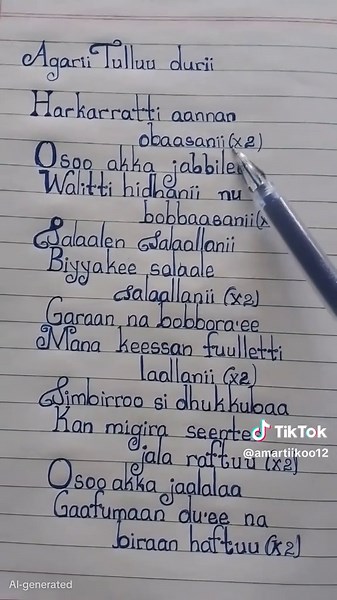 Agarii Tulluu durii
Harkarratti aannan
obaasanii (x2)
Osoo akka jabbilee
Walitti hidhanii nu
bobbaasanii (x
Salaalen Salaallanii
Biyyakee salaale
salaallanii (x2)
Garaan na bobbora'ee
Mana keessan fuulletti
laallanii (x2)
Simbirroo si dhukkubaa
Kan migira seente
jala raftuu (x2)
Osoo akka jaalalaa
Gaafumaan du'ee na
biraan haftuu (x2)
TikTok
@amartiikoo12
AI-generated